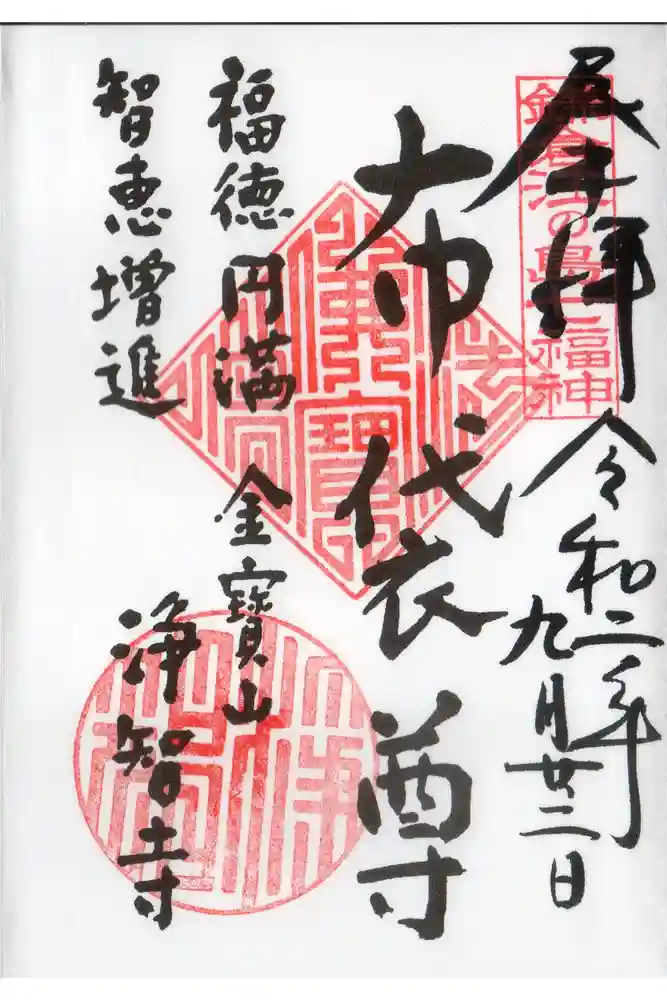 鎌倉江の島七福神
奉拝
令和二年
九月廿二日
布袋尊
福徳円満
智恵増進
金寶山
浄智寺